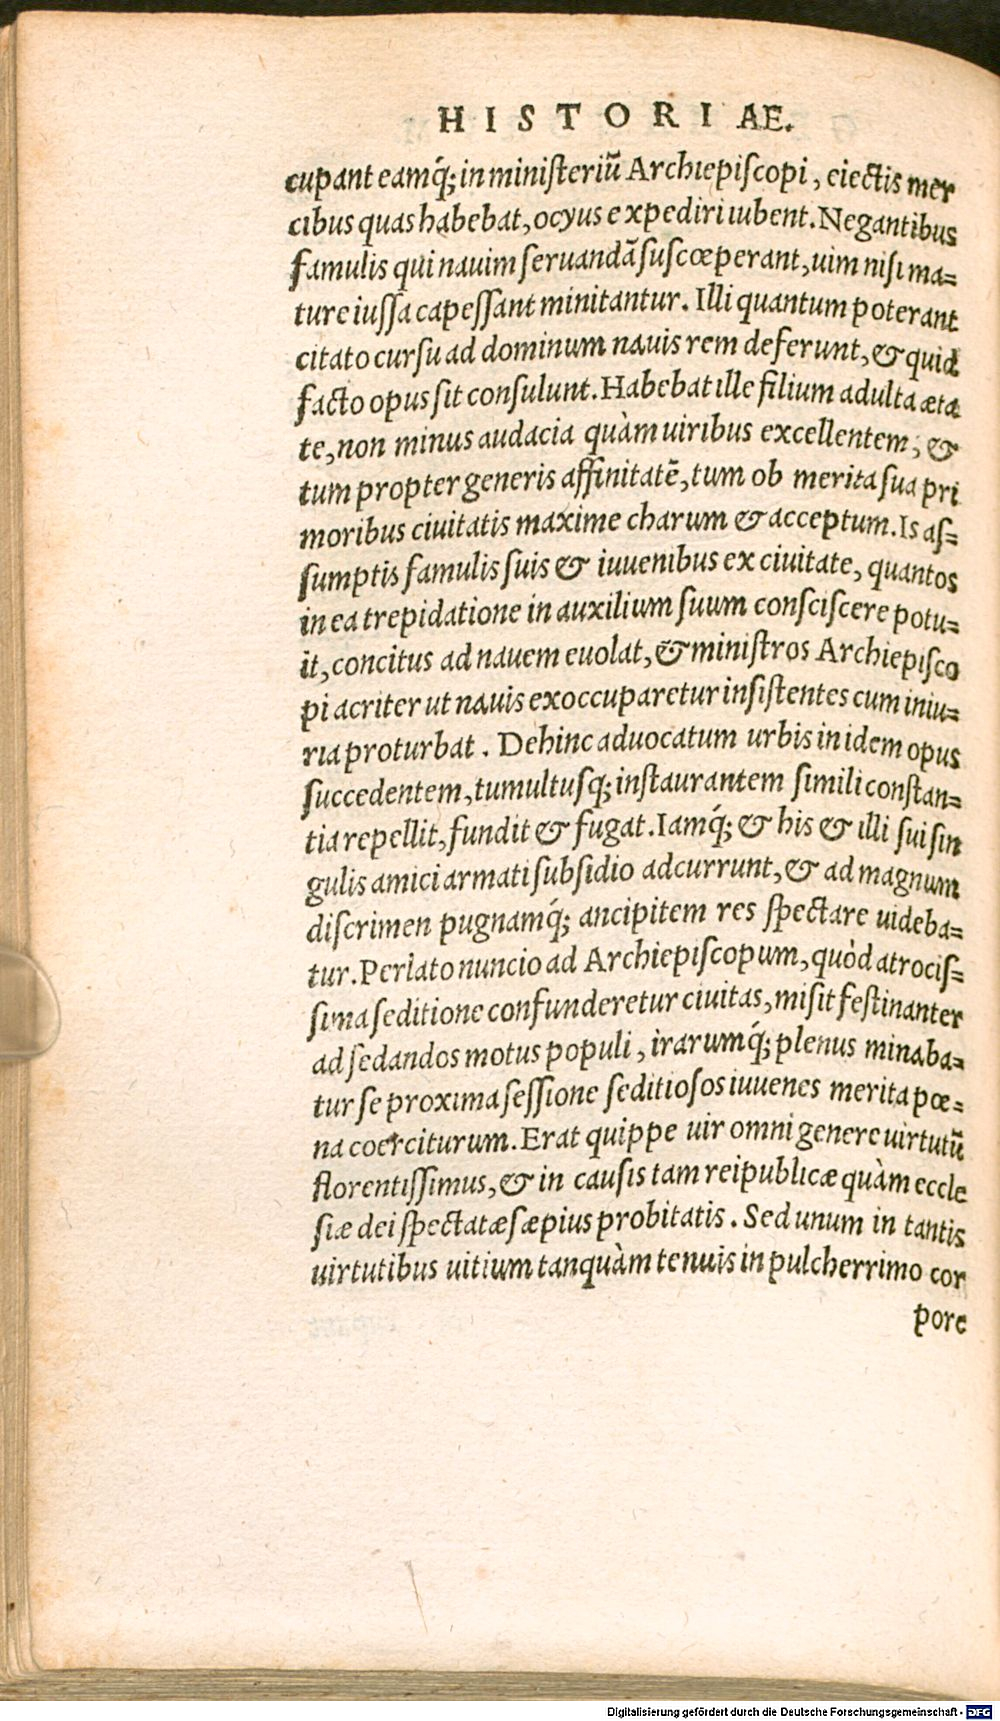 HISTORIAE.
cupant eamq́; in miniſteriũ Archiepiſcopi, eiectis mer
cibus quas habebat, ocyus expediri iubent. Negantibus
famulis qui nauim ſeruandã ſuſcœperant, uim niſi ma=
ture iuſſa capeſſant minitantur. Illi quantum poterant
citato curſu ad dominum nauis rem deferunt, & quid
facto opus ſit conſulunt. Habebat ille filium adulta æta
te, non minus audacia quàm uiribus excellentem, &
tum propter generis affinitatẽ, tum ob merita ſua pri
moribus ciuitatis maxime charum & acceptum. Is aſ=
ſumptis famulis ſuis & iuuenibus ex ciuitate, quantos
in ea trepidatione in auxilium ſuum conſciſcere potu=
it, concitus ad nauem euolat, & miniſtros Archiepiſco
pi acriter ut nauis exoccuparetur inſiſtentes cum iniu=
ria proturbat. Dehinc aduocatum urbis in idem opus
ſuccedentem, tumultuſq; inſtaurantem ſimili conſtan=
tia repellit, fundit & fugat. Iamq́; & his & illi ſui ſin
gulis amici armati ſubſidio adcurrunt, & ad magnum
diſcrimen pugnamq́; ancipitem res ſpectare uideba=
tur. Perlato nuncio ad Archiepiſcopum, quòd atrociſ=
ſima ſeditione confunderetur ciuitas, miſit feſtinanter
ad ſedandos motus populi, irarumq́; plenus minaba=
tur ſe proxima ſeſſione ſeditioſos iuuenes merita pœ=
na coerciturum. Erat quippe uir omni genere uirtutũ
florentiſſimus, & in cauſis tam reipublicæ quàm eccle
ſiæ dei ſpectatæ ſæpius probitatis. Sed unum in tantis
uirtutibus uitium tanquàm tenuis in pulcherrimo cor
pore
Digitalisierung gefördert durch die Deutsche Forschungsgemeinschaft - DFG